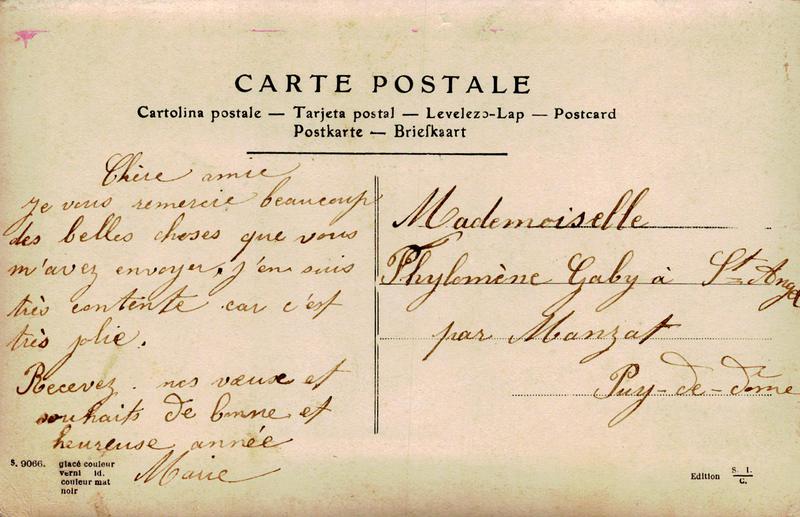 CARTE POSTALE
Cartolina postale — Tarjeta postal — Levelezo-Lap — Postcard
Postkarte — Briefkaart
Chère amie
je vous remercie beaucoup
des belles choses que vous
m'avez envoyer, j'en suis
très contente car c'est
très jolie.
Recevez nos vœux et
souhaits de bonne et
heureuse année
Marie
Mademoiselle
Phylomène Gaby à St Angel
par Manzat
Puy-de-dôme
S. 9066. glacé couleur
verni id.
couleur mat
noir
Edition S. I. C.